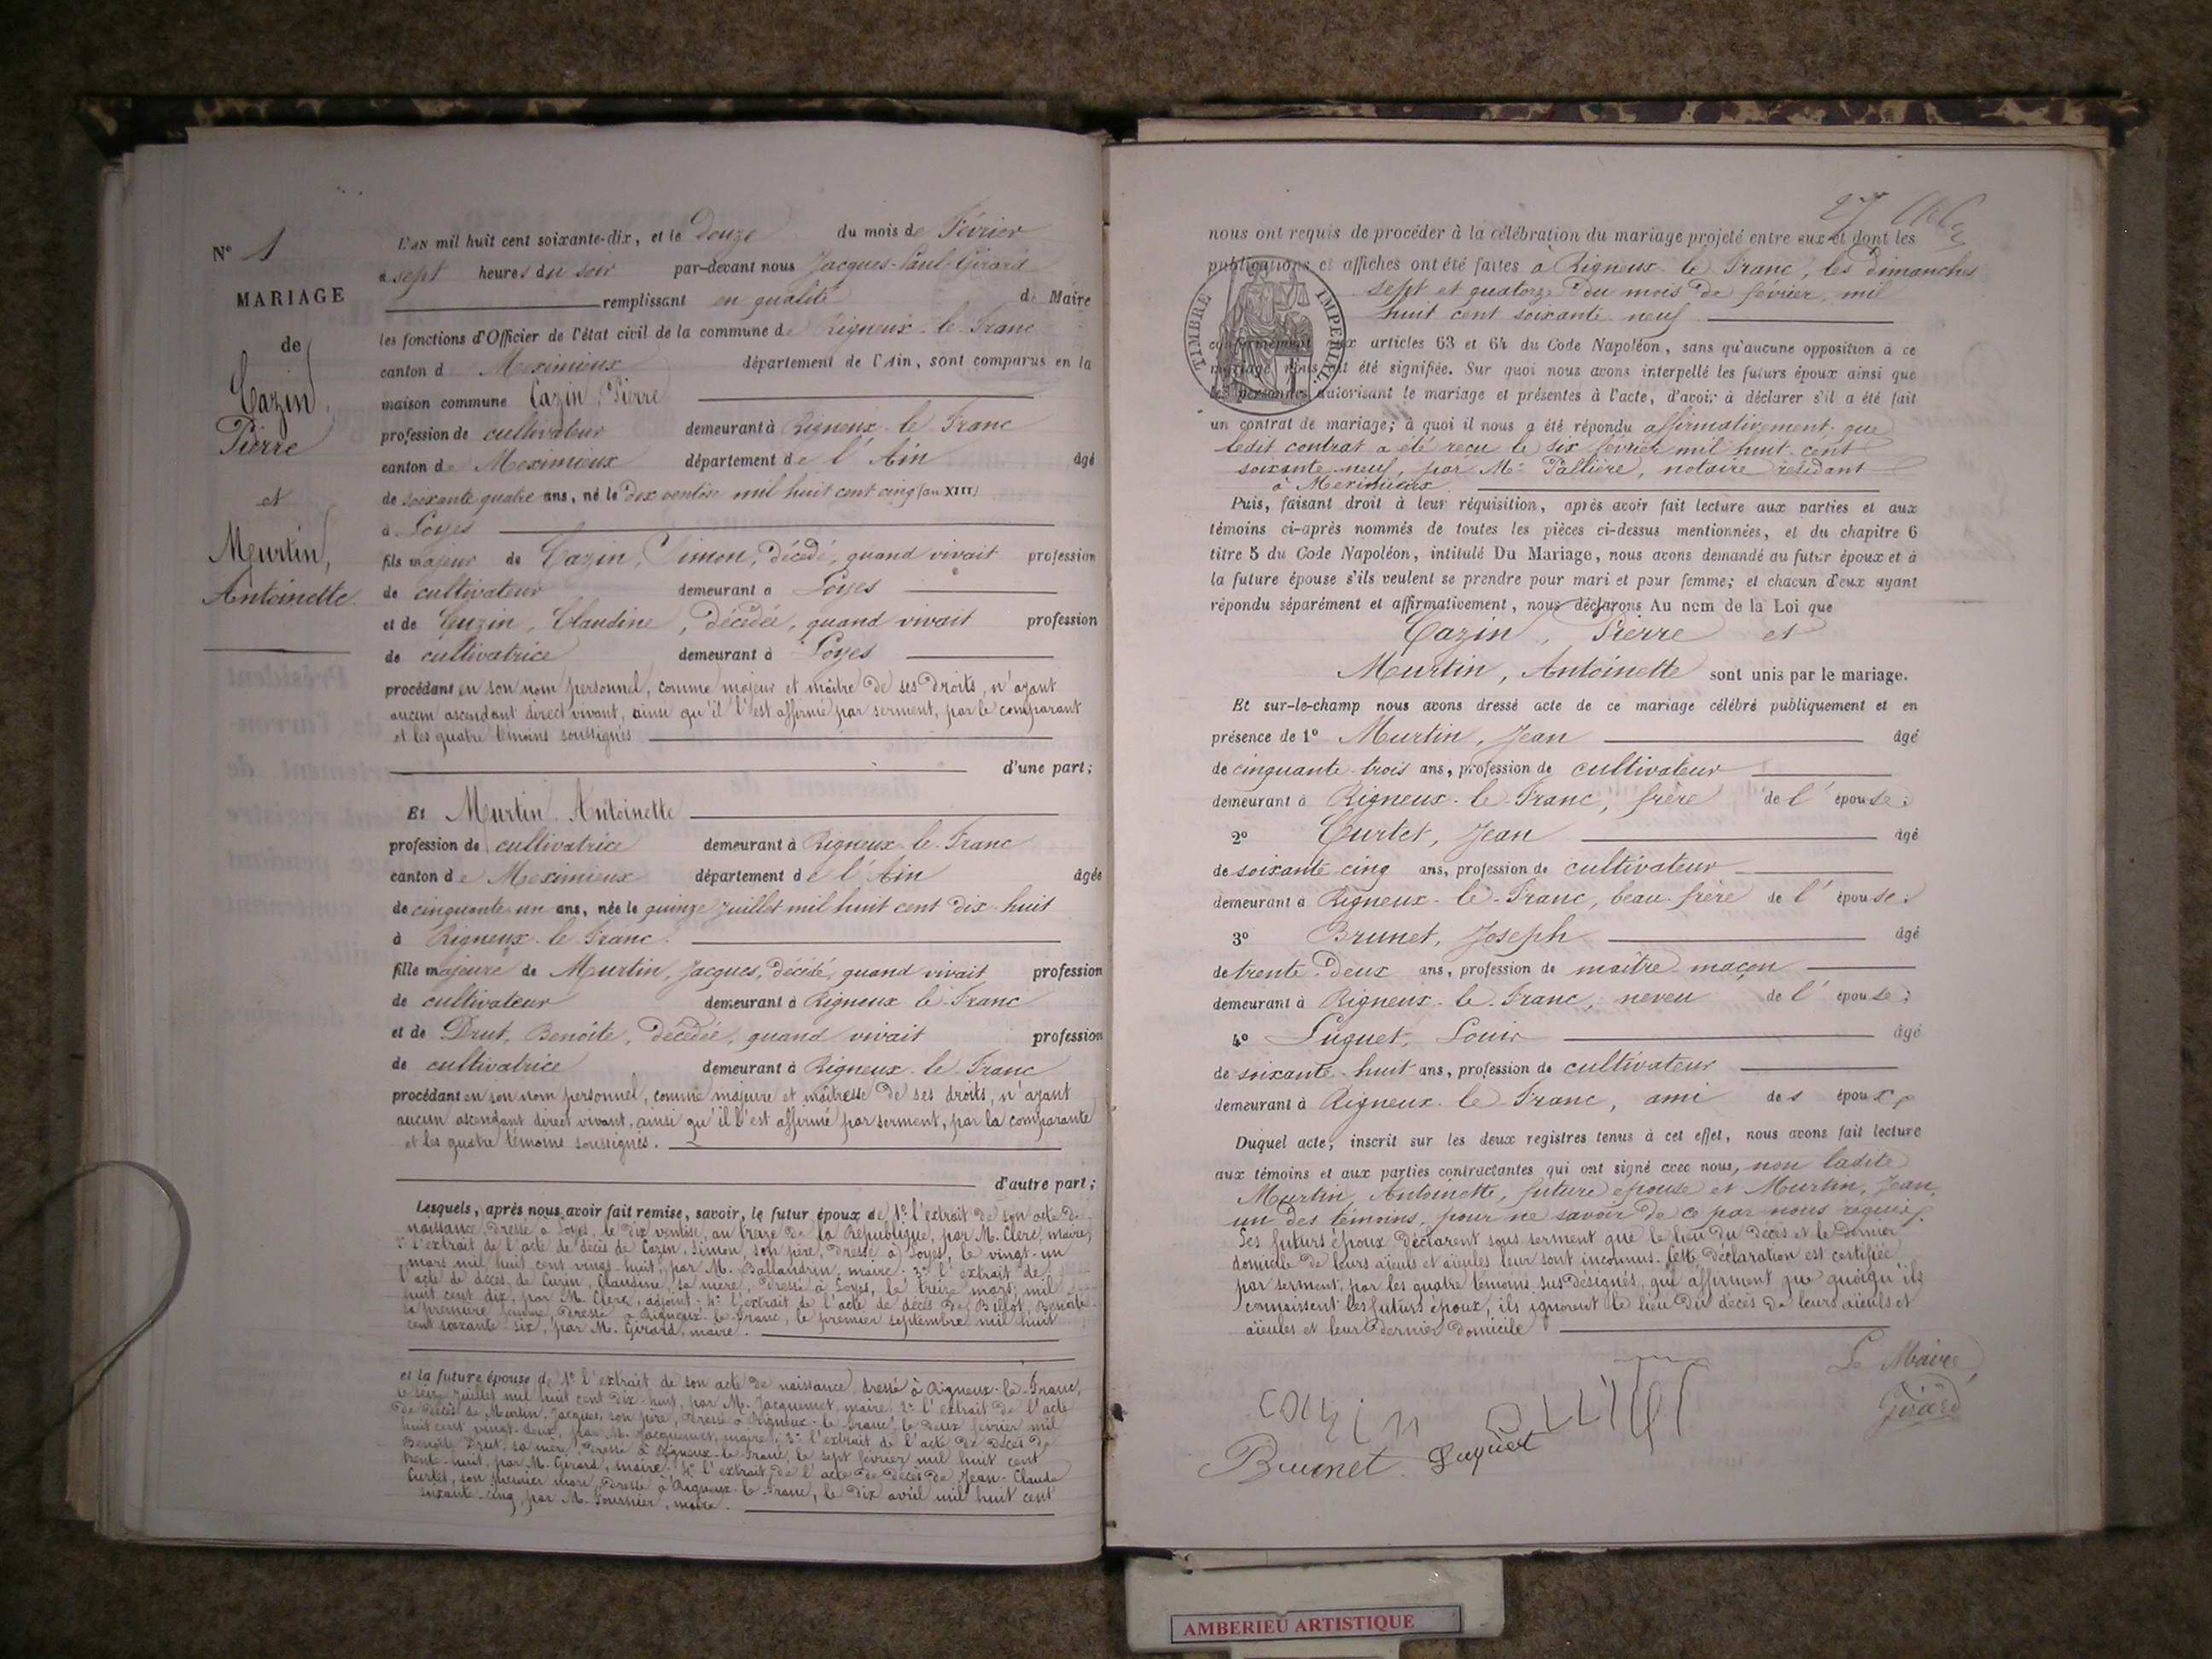 N° 1
MARIAGE
de
Cazin,
Pierre
et
Murtin,
Antoinette.
L'AN mil huit cent soixante-dix, et le Douze du mois de Février
à sept heures du soir par-devant nous Jacques-Paul Girard
remplissant en qualité de Maire
les fonctions d'Officier de l'état civil de la commune de Rigneux-le-Franc
canton d Meximieux département de l'Ain, sont comparus en la
maison commune Cazin, Pierre
profession de cultivateur demeurant à Rigneux-le-Franc
canton de Meximieux département de l'Ain âgé
de soixante quatre ans, né le dix ventôse mil huit cent cinq (an XIII)
à Loyes
fils majeur de Cazin, Simon, décédé, quand vivait profession
de cultivateur demeurant à Loyes
et de Guzin, Claudine, décédée, quand vivait profession
de cultivatrice demeurant à Loyes
procédant en son nom personnel, comme majeur et maître de ses droits, n'ayant
aucun ascendant direct vivant, ainsi qu'il l'est affirmé par serment, par le comparant
et les quatre témoins soussignés
d'une part;
Et Murtin, Antoinette
profession de cultivatrice demeurant à Rigneux-le-Franc
canton de Meximieux département de l'Ain âgée
de cinquante-un ans, née le quinze juillet mil huit cent dix-huit
à Rigneux-le-Franc.
fille majeure de Murtin, Jacques, décédé, quand vivait profession
de cultivateur demeurant à Rigneux le Franc
et de Drut, Benoîte, décédée, quand vivait profession
de cultivatrice demeurant à Rigneux-le-Franc
procédant en son nom personnel, comme majeure et maîtresse de ses droits, n'ayant
aucun ascendant direct vivant, ainsi qu'il l'est affirmé par serment, par la comparante
et les quatre témoins soussignés.
d'autre part;
Lesquels, après nous avoir fait remise, savoir, le futur époux de 1° l'extrait de son acte de
naissance, dressé à Loyes, le dix ventôse, an treize de la République, par M. Clerc, maire;
2° l'extrait de l'acte de décès de Cazin, Simon, son père, dressé à Loyes, le vingt-un
mars mil huit cent vingt-huit, par M. Ballandrin, maire; 3° l'extrait de
l'acte de décès de Cuzin, Claudine, sa mère, dressé à Loyes, le treize mars mil
huit cent dix, par M. Clerc, adjoint; 4° l'extrait de l'acte de décès de Billot, Benoite
sa première femme, dressé à Rigneux-le-Franc, le premier septembre mil huit
cent soixante-six, par M. Girard, maire.
et la future épouse de 1° l'extrait de son acte de naissance, dressé à Rigneux-le-Franc,
le seize juillet mil huit cent dix-huit, par M. Jacquemet, maire; 2° l'extrait de l'acte
de décès de Murtin, Jacques, son père, dressé à Rigneux-le-Franc, le deux février mil
huit cent vingt-deux, par M. Jacquemet, maire; 3° l'extrait de l'acte de décès de
Benoîte Drut, sa mère, dressé à Rigneux-le-Franc, le sept février mil huit cent
trente-huit, par M. Girard, maire; 4° l'extrait de l'acte de décès de Jean-Claude
Curtet, son premier mari, dressé à Rigneux-le-Franc, le dix avril mil huit cent
soixante-cinq, par M. Fournier, maire.
27
nous ont requis de procéder à la célébration du mariage projeté entre eux et dont les
publications et affiches ont été faites à Rigneux-le-Franc, les dimanches
sept et quatorze du mois de février mil
huit cent soixante-neuf
TIMBRE IMPERIAL.
conformément aux articles 63 et 64 du Code Napoléon, sans qu'aucune opposition à ce
mariage nous ait été signifiée. Sur quoi nous avons interpellé les futurs époux ainsi que
les personnes autorisant le mariage et présentes à l'acte, d'avoir à déclarer s'il a été fait
un contrat de mariage; à quoi il nous a été répondu affirmativement que
ledit contrat a été reçu le six février mil huit cent
soixante-neuf, par Me Pallière, notaire résidant
à Meximieux
Puis, faisant droit à leur réquisition, après avoir fait lecture aux parties et aux
témoins ci-après nommés de toutes les pièces ci-dessus mentionnées, et du chapitre 6
titre 5 du Code Napoléon, intitulé Du Mariage, nous avons demandé au futur époux et à
la future épouse s'ils veulent se prendre pour mari et pour femme; et chacun d'eux ayant
répondu séparément et affirmativement, nous déclarons Au nom de la Loi que
Cazin, Pierre et
Murtin, Antoinette sont unis par le mariage.
Et sur-le-champ nous avons dressé acte de ce mariage célébré publiquement et en
présence de 1° Murtin, Jean âgé
de cinquante-trois ans, profession de cultivateur
demeurant à Rigneux-le-Franc, frère de l'épouse;
2° Curtet, Jean âgé
de soixante cinq ans, profession de cultivateur
demeurant à Rigneux-le-Franc, beau-frère de l'épouse;
3° Brunet, Joseph âgé
de trente-deux ans, profession de maître maçon
demeurant à Rigneux-le-Franc, neveu de l'épouse;
4° Luguet, Louis âgé
de soixante-huit ans, profession de cultivateur
demeurant à Rigneux-le-Franc, ami des époux,
Duquel acte, inscrit sur les deux registres tenus à cet effet, nous avons fait lecture
aux témoins et aux parties contractantes qui ont signé avec nous, non ladite
Murtin, Antoinette, future épouse et Murtin, Jean,
un des témoins, pour ne savoir de ce par nous requis.
Les futurs époux déclarent sous serment que le lieu du décès et le dernier
domicile de leurs aïeuls et aïeules leur sont inconnus. Cette déclaration est certifiée
par serment, par les quatre témoins susdésignés, qui affirment que quoiqu'ils
connaissent les futurs époux, ils ignorent le lieu du décès de leurs aïeuls et
aïeules et leur dernier domicile
Le Maire
Girard
Brunet Luguet
AMBERIEU ARTISTIQUE